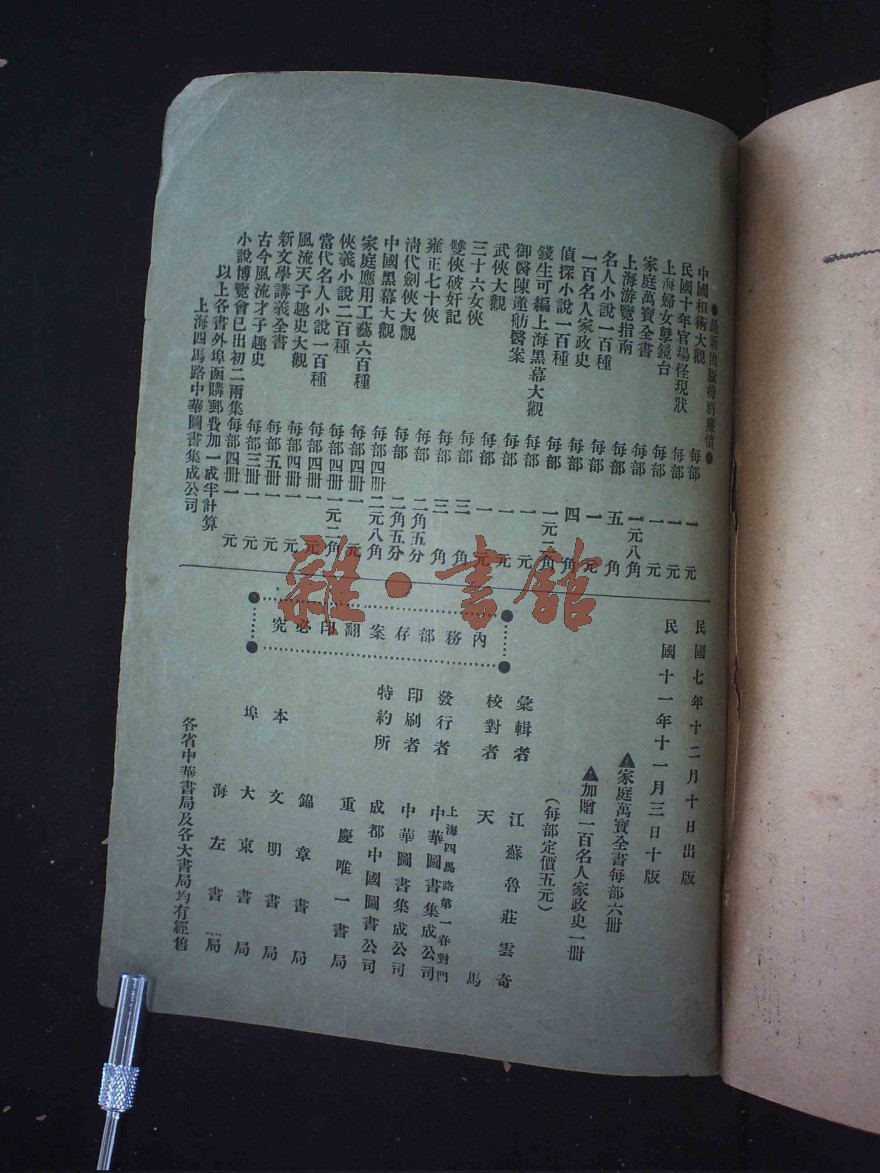 ●最新出版特別廉價●
中國相術大觀 每部 一元
民國十年官場怪現狀 每部 一元
上海婦女孽鏡台 每部 一元
家庭萬寶全書 每部 一元八角
上海游覽指南 每部 五角
名人小說一百種 每部 一元
一百名人家政史 每部 四角
偵探小說一百種 每部 一元二角
錢生可編上海黑幕大觀 每部 一元
御醫陳蓮舫醫案 每部 一元
武俠大觀 每部 一元
三十六女俠 每部 三角
雙俠破奸記 每部 三角
雍正七十俠 每部 二角五分
清代劍俠大觀 每部 二角五分
中國黑幕大觀 每部四冊 二元八角
家庭應用工藝六百種 每部四冊 一元
俠義小說二百種 每部四冊 一元二角
當代名人小說一百種 每部四冊 一元
風流天子趣史大觀 每部四冊 一元
新文學講義全書 每部五冊 一元
古今風流才子趣史 每部三冊 一元
小說博覽會已出初二兩集 每部四冊 一元
以上各書外埠函購郵費加一成半計算
上海四馬路中華圖書集成公司
民國七年十二月十日出版
民國十一年十一月三日十版
▲家庭萬寶全書每部六冊
▲加增一百名人家政史一冊
(每部定價五元)
彙輯者 江蘇魯莊雲奇
校對者 天馬
發行者 上海四馬路第一春對門
中華圖書集成公司
印刷者 中華圖書集成公司
特約所 成都中國圖書公司
重慶唯一書局
本埠 錦章書局
文明書局
大東書局
海左書局
各省中華書局及各大書局均有經售
內務部存案翻印必究
雜·書館